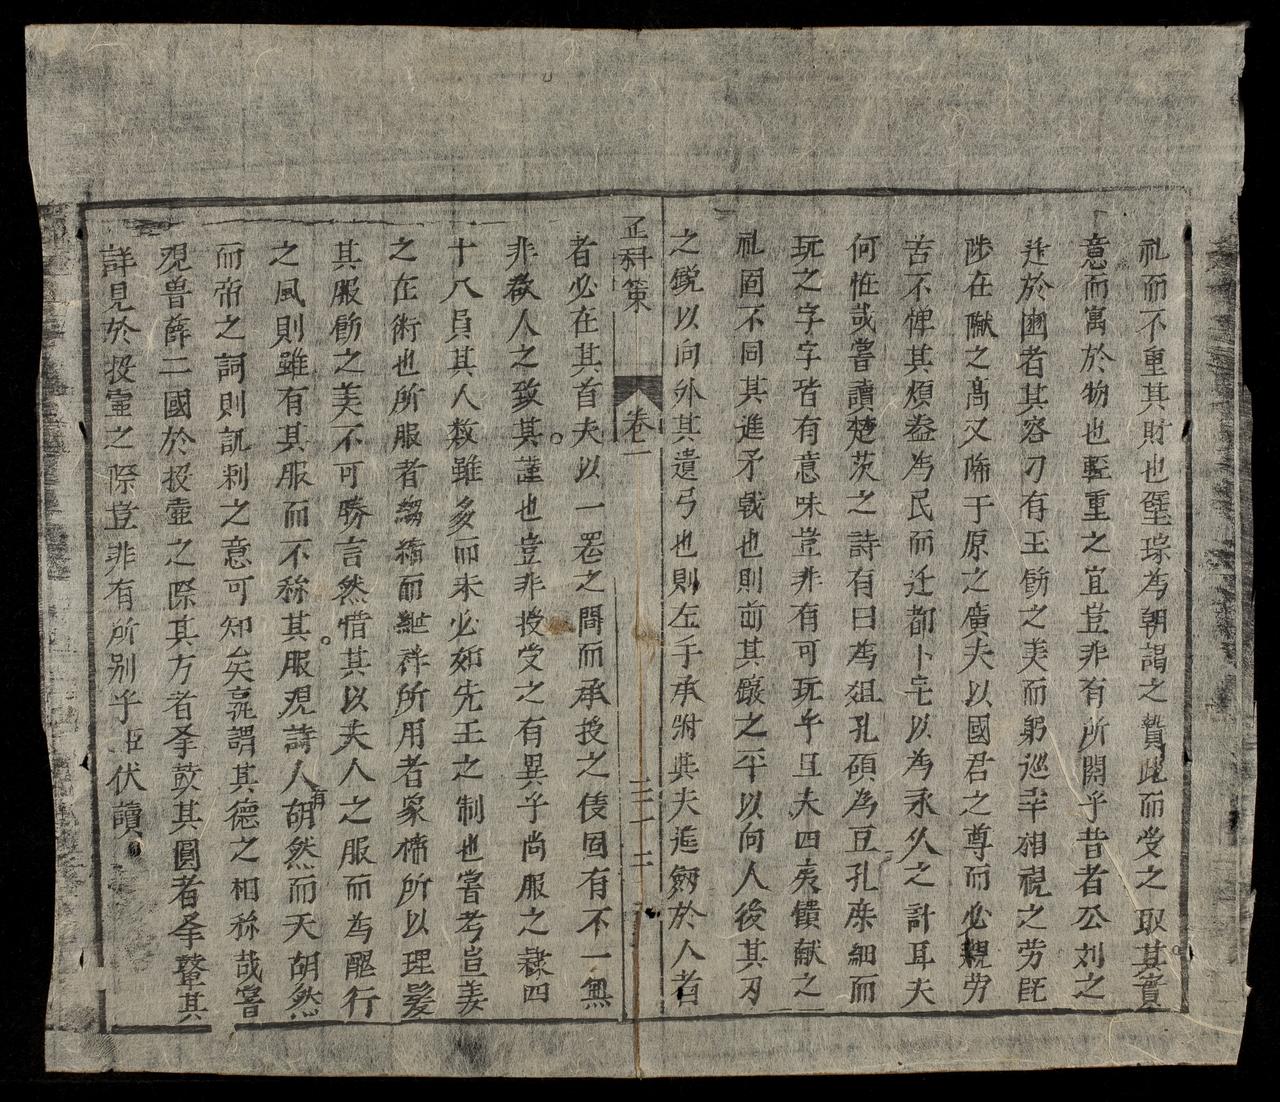 礼而不重其財也璧琮為朝謁之贄此而受之取其實
意而寓於物也輕重之宜豈非有所關乎昔者公刘之
迁於豳者其容刀有玉餙之美而躬巡幸相視之劳既
陟在巘之髙又降于原之廣夫以國君之尊而必親劳
苦不憚其煩盖為民而迁都卜宅以為永久之計耳夫
何怪哉嘗讀楚茨之詩有曰為俎孔碩為豆孔庶細而
玩之字字皆有意味豈非有可玩乎且夫四夷饋献之
礼固不同其進矛戟也則前其鐓之平以向人後其刃
之銳以向外其遺弓也則左手承弣其夫進劔於人者
正科策 卷一 三十二
者必在其首夫以一器之間而承授之儀固有不一無
非教人之致其謹也豈非授受之有異乎尚服之隸四
十八員其人数雖多而未必如先王之制也嘗考豈姜
之在術也所服者縐絺而紲袢所用者象揥所以理髮
其服餙之美不可勝言然惜其以夫人之服而為醜行
之風則雖有其服而不称其服現詩人有胡然而天胡然
而帝之詞則訊刺之意可知矣寔謂其德之相称哉嘗
現魯薛二國於投壷之際其方者夅鼓其圓者夅鼙其
詳見於投壷之際豈非有所别乎臣伏讀